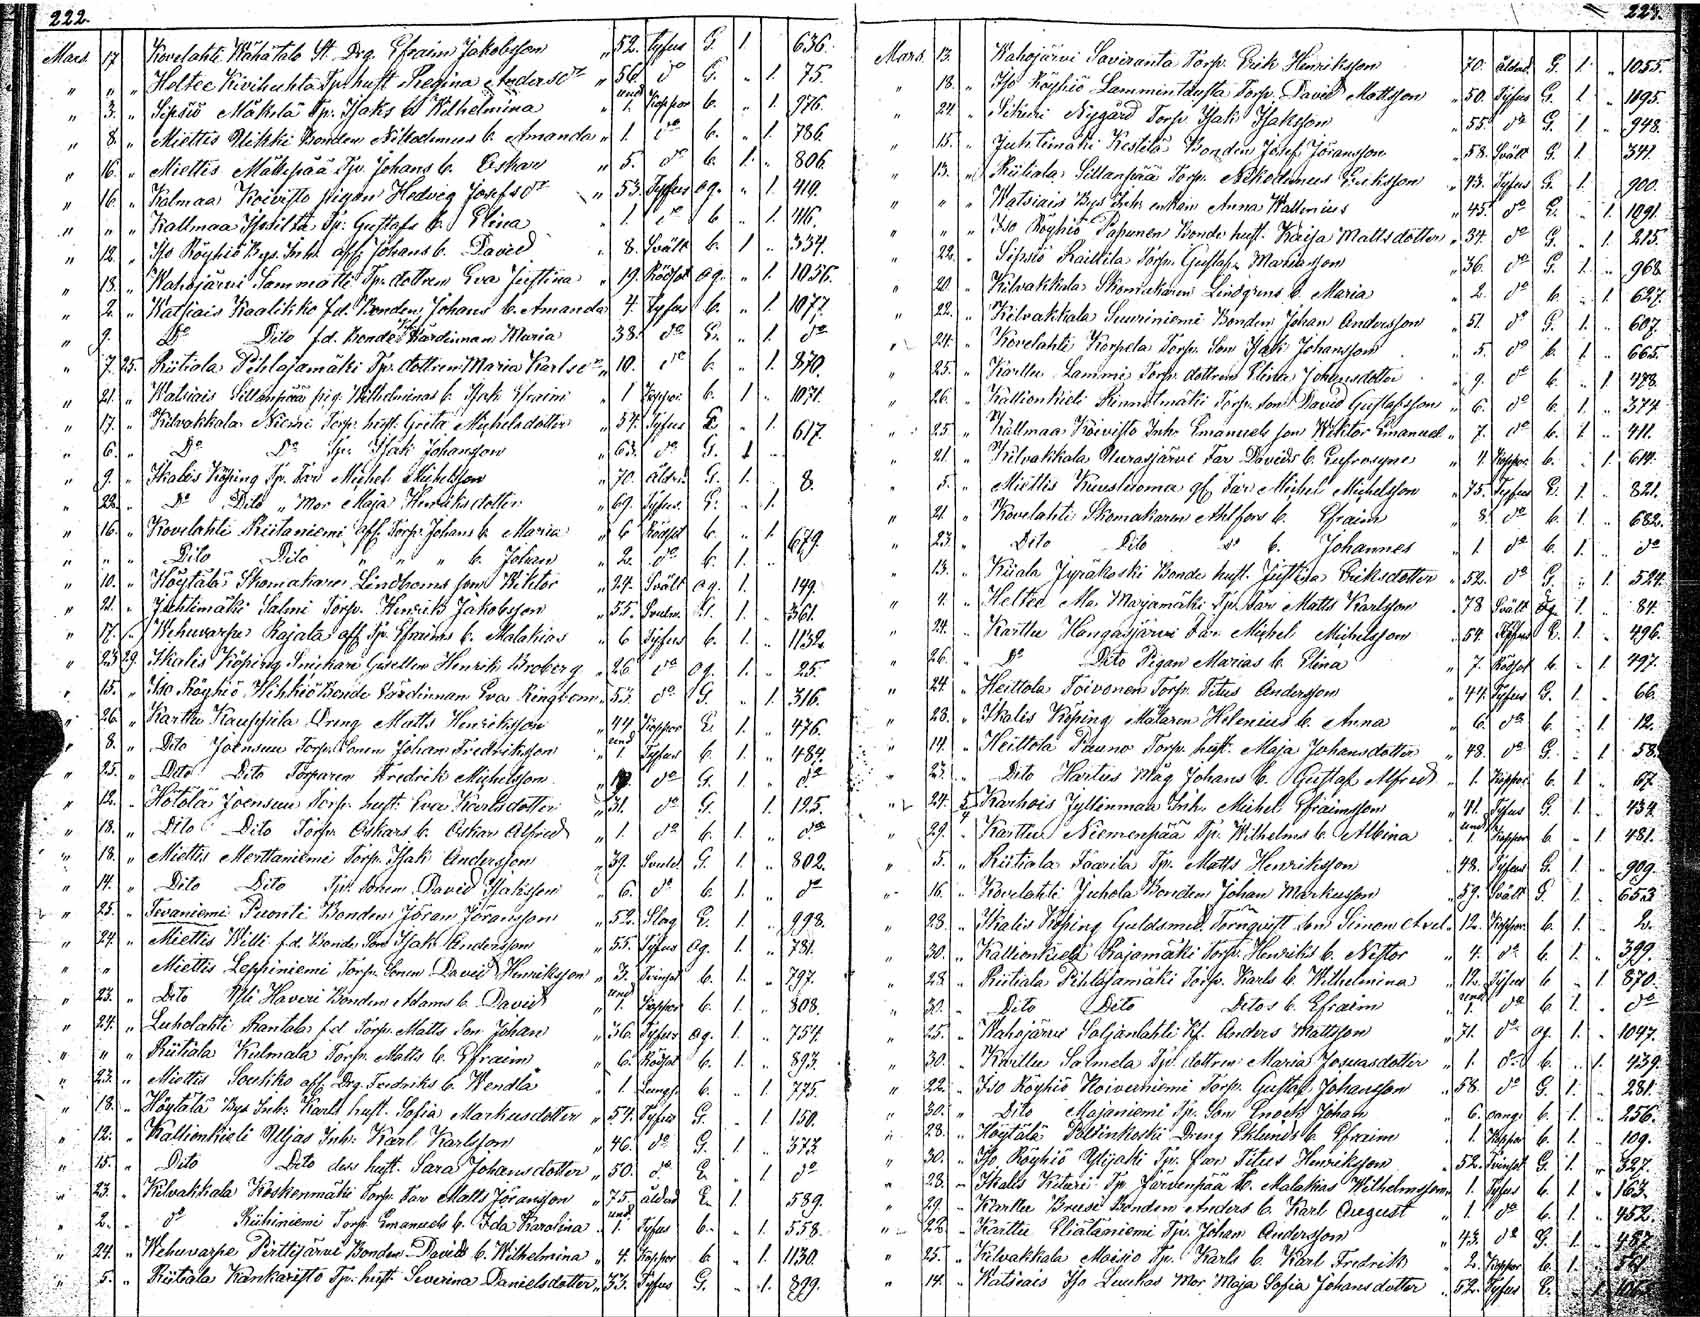 222.
Mars 17 Kovelahti Wähätalo Drg. Efraim Jakobsson 52. Tyfus G. 1 636.
" " Heltee Kivihuhta Tp. hust. Regina Andersdr 56. do G. " 1. 75.
" 3. Sipsiö Mäkelä Tp. Isaks Wilhelmina und 1. Koppor b. " 1. 976.
" 8. Miettis Ukkki Bonden Nikodemus b. Amanda 1. do b. " 1. 786.
" 16. Miettis Mäkipää Tp. Johans b. Oskar 5. do b. 1. " 806.
" 16. Kalmaa Koivisto pigan Hedvig Josefsdr 53. Tyfus og. " 1. 410.
" " Kallmaa Tp. Gustafs b. Elina 1. do b. " 1. 416.
" 12. Iso Röyhiö Bys. Inh. Johans b. David 8. Svält b. 1 " 334.
" 18. Wahojärvi Sammatti Tp. dottren Eva Justina 19. Rödsot og. " 1. 1056.
" 2. Watsiais Kaalikko f.d. Bonden Johans b. Amanda 4. Tyfus b. " 1. 1077.
" 9. Do Dito f.d. Bonde Wärdinnan Maria 38. do E. " 1. do
" 7. 25. Riitiala Pihlajamäki Tp. dottren Maria Karlsdr 10. do b. " 1. 870.
" 21. " Watsiais Sillanpää pig. Wilhelminas b. Isak Efraim 1 Koppor b. 1 " 1071.
" 17. " Kilvakkala Niemi Torp. hust. Greta Michelsdotter 34. Tyfus E " 1. 617.
" 6. " Do Do Tp. Isak Johansson 63. do G. 1 "
" 9. " Ikalis Köping Tp. Far Michel Michelsson 70. Åldr. G. 1. 8.
" 22. " Do Dito " Mor Maja Henriksdotter 69. Tyfus. E. " 1.
" 16. " Kovelahti Riitaniemi aff. Torp. Johans b. Maria 6 Rödsot b. " 1 679.
" " " Dito Dito " " " b. Johan 2. do b. 1. "
" 10. " Höytälä Skomakare Lindboms son Viktor 24. Svält og. 1. " 149.
" 21. " Juhtimäki Salmi Torp. Henrik Jakobsson 55. G. 1. " 361.
" 17. " Wehuvarpe Rajala aff. Tp. Efraims b. Malakias 6 Tyfus b. 1. " 1132.
" 23 29. Ikalis Köping Snickare Gesellen Henrik Broberg 26. do og. 1. " 25.
" 15. " Iso Röyhiö Hihkiö Bonde Wärdinnan Eva Ringbom 53. do G. " 1. 316.
" 26. " Karttu Kauppila Dreng Matts Henriksson 44 Koppor E. 1. " 476.
" 8. " Dito Joensuu Torp. Sonen Johan Fredriksson und 1. Tyfus b. 1. " 484.
" 25. " Dito Dito Torparen Fredrik Michelsson do G. 1. " do
" 12. " Kotola Joensuu Torp. hust. Eva Karlsdotter 31. do G. " 1. 125.
" 18. " Dito Dito Torp. Oskars b. Oskar Alfred 1. do b. 1. " do
" 18. " Miettis Merttaniemi Torp. Isak Andersson 39. G. 1. " 802.
" 14. " Dito Dito Tp. Sonen David Isaksson 6. do b. 1. " do
" 25. " Tevaniemi Puonti Bonden Jöran Jöransson 52. Slag E. 1. " 998.
" 24. " Miettis Willi f.d. Bonde Son Isak Andersson 55. Tyfus og. 1. " 781.
" " " Miettis Leppiniemi Torp. Sonen David Henriksson 3. b. 1. " 797.
" 23. " Dito Yli Haveri Bonden Adams b. David und 1. Koppor b. 1. " 808.
" 24. " Luholahti Rantala f.d. Torp. Matts Son Johan 36. Tyfus og. 1. " 754.
" " " Riitiala Kulmala Torp. Matts b. Efraim 6. Rödsot b. 1. " 893.
" 23. " Miettis Soukko aff. Drg. Fredriks b. Wendla 1. Lungs. b. " 1. 775.
" 18. " Höytälä Bys Inh. Karls hust. Sofia Markusdotter 54. Tyfus G. " 1 150.
" 12. " Kallionkieli Uljas Inh. Karl Karlsson 46. do G. 1. " 373
" 15. " Dito Dito dess hust. Sara Johansdotter 50. do E " 1 do
" 23. " Kilvakkala Koskenmäki Torp. Far Matts Jöransson 75. ålder E. 1 " 589.
" 2. " do Riihiniemi Torp. Emanuels b. Ida Karolina und 1. Tyfus b. " 1. 558.
" 24. " Wehuvarpe Pirttijärvi Bonden Davids b. Wilhelmina 4. Koppor b. " 1. 1130.
" 5. " Riitiala Kankaristo Tp. hust. Severina Danielsdotter 33. Tyfus G. " 1. 899.
223.
Mars. 13. Wahojärvi Saviranta Torp. Erik Henriksson 70. ålder G. 1. " 1055.
" 18. " Iso Röyhiö Lammintausta Torp. David Mattsson 50. Tyfus G. 1. " 1095.
" 24. " Sikuri Nygård Torp. Isak Isaksson 55. do G. 1. " 948.
" 15. " Juhtimäki Kestilä Bonden Josef Jöransson 58. Svält G. 1. 341.
" 13. " Riitiala Sillanpää Torp. Nikodemus Eriksson 43. Tyfus G. 1. 900.
" " " Watsiais Bys Inh. enkan Anna Wallenius 45. do E. " 1. 1091.
" " " Iso Röyhiö Papunen Bonde hust. Kaisa Mattsdotter 34. do G. " 1. 215.
" 22. " Sipsiö Raikila Torp. Gustaf Mattsson 36. do G. 1. " 968
" 20. " Kilvakkala Skomakaren Lindgrens b. Maria 2. do b. " 1 627.
" 22. " Kilvakkala Suuriniemi Bonden Johan Andersson 51. do G. 1. " 607.
" 24. " Kovelahti Korpela Torp. Son Isak Johansson 5. do b. 1. " 665.
" 25. " Karttu Lammi Torp. dottren Elina Johansdotter 9. do b. " 1 478.
" 26. " Kallionkieli Torp. Son David Gustafsson 6. do b. 1. " 374
" 25. " Kallmaa Koivisto Inh. Emanuels son Wiktor Emanuel 7. do b. 1 " 411.
" 21 " Kilvakkala Uurasjärvi Far Davids b. Eufrosyne 4. Koppor b. " 1 614.
" 5. " Miettis Kuusluoma gf. Far Michel Michelsson 75. Tyfus E. 1. " 821.
" 21 " Kovelahti Skomakaren Ahlfors b. Efraim 8. do b. 1. " 682.
" 23. " Dito Dito do b. Johannes 1. do b. 1. " do
" 13. " Kiiala Jyräkoski Bonde hust. Justina Eriksdotter 52. do G. " 1. 524.
" 4. " Heltee Ala Marjamäki Tp. Far Matts Karlsson 78 Svält 1. " 84.
" 24. " Karttu Hangasjärvi Far Michel Michelsson 54. Tyfus E. 1. " 496.
" 26. " Do Dito Pigan Marias b. Elina 7. Rödsot b. " 1 497.
" 24. " Heittola Toivonen Torp. Titus Andersson 44. Tyfus G. 1 " 66.
" 28. " Ikalis Köping Målaren Helenius b. Anna 6. do b. " 1 12.
" 14. " Heittola Pauno Torp. hust. Maja Johansdotter 48. do G. " 1 58.
" 27. " Dito Hartus Måg Johans b. Gustaf Alfred 1. Koppor b. 1 " 67.
" 24. Karhois Jyllinmaa Inh. Michel Efraimsson 41. Tyfus G. 1 " 434.
" 29. " Karttu Niemenpää Tp. Wilhelms b. Albina und 1. Koppor b. " 1 481.
" 5. " Riitiala Faarila Tp. Matts Henriksson 48. Tyfus G. 1. " 909.
" 16. " Kovelahti Juhola Bonden Johan Markusson 59. Svält G. 1 " 653
" 28. " Ikalis Köping Guldsmed Törnqvist Son Simon Axel 12. Koppor b. 1. " 2.
" 30. " Kallionkieli Rajamäki Torp. Henriks b. Nestor 4. do b. 1. " 399.
" 28. " Riitiala Pihlajamäki Torp. Karls b. Wilhelmina 12. Tyfus b " 1 870.
" 30. " Dito Dito Ditos b. Efraim und 1. do b 1. " do
" 25. " Wahojärvi Poljanlahti Anders Mattsson 71. do og. 1. " 1047.
" 30. " Karttu Salmela Tp. dottren Maria Josuasdotter 1. do b. " 1. 439.
" 22. " Iso Röyhiö Koivuniemi Torp. Gustaf Johansson 58. do G 1. " 281.
" 30. " Dito Majaniemi Tp. Son Enock Johan 6. b. 1. " 256.
" 28. " Höytälä Poltinkoski Dreng Eklunds b. Efraim 1. Koppor b. 1. " 109.
" 30. " Iso Röyhiö Ylijaki Tp. Far Titus Henriksson 52. G. 1. " 327.
" 28. " Ikalis Kilari Tp. Järvenpää b. Malakias Wilhelmsson 1. Tyfus b. 1. " 163.
" 29. " Karttu Bruse Bonden Anders b. Karl August 1. do b. 1. " 452.
" 22. " Karttu Eliätaniemi Tp. Johan Andersson 43. do G. 1. " 487
" 25. " Kilvakkala Moisio Tp. Karls b. Karl Fredrik 2. Koppor b. 1.
" 14. " Watsiais Iso Luukas Mor Maja Sofia Johansdotter 52. Tyfus E. " 1.